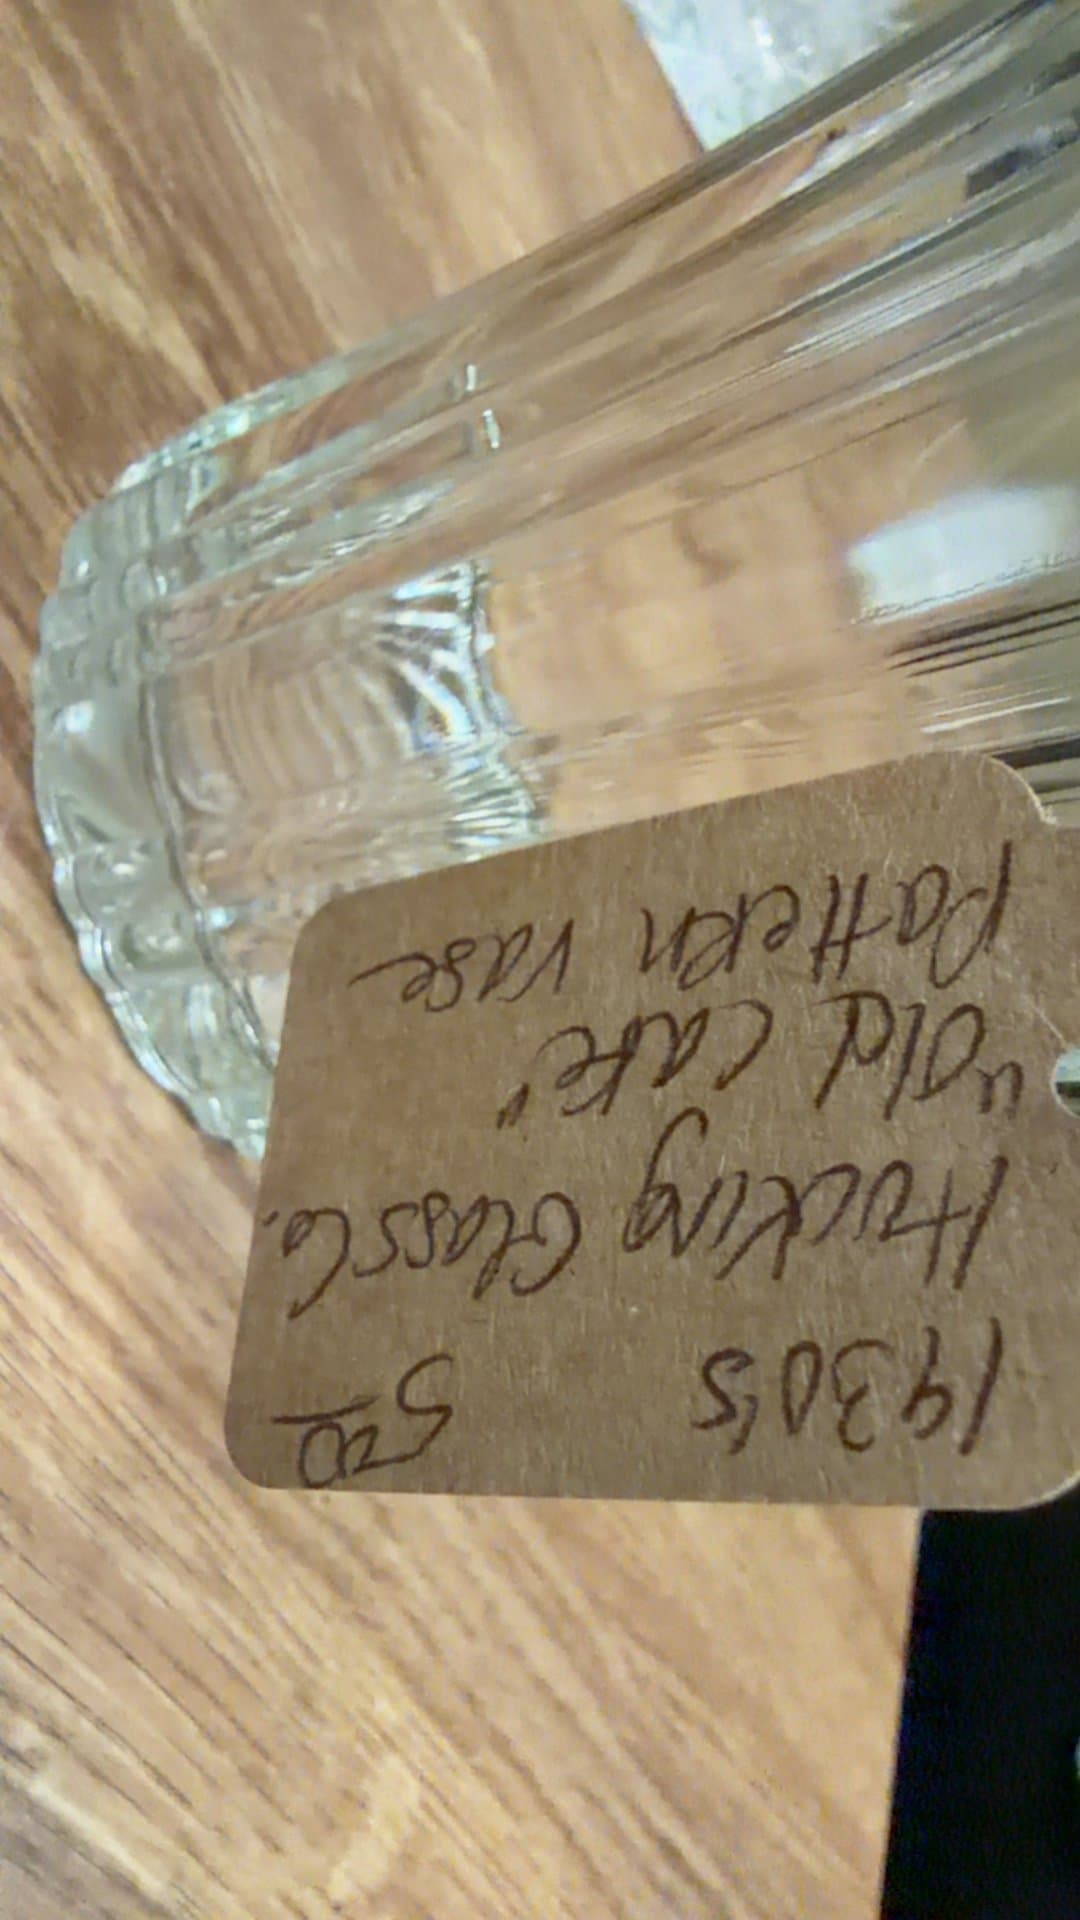 1930's 5 00
Hocking Glass Co.
"Old Cafe"
Pattern Vase